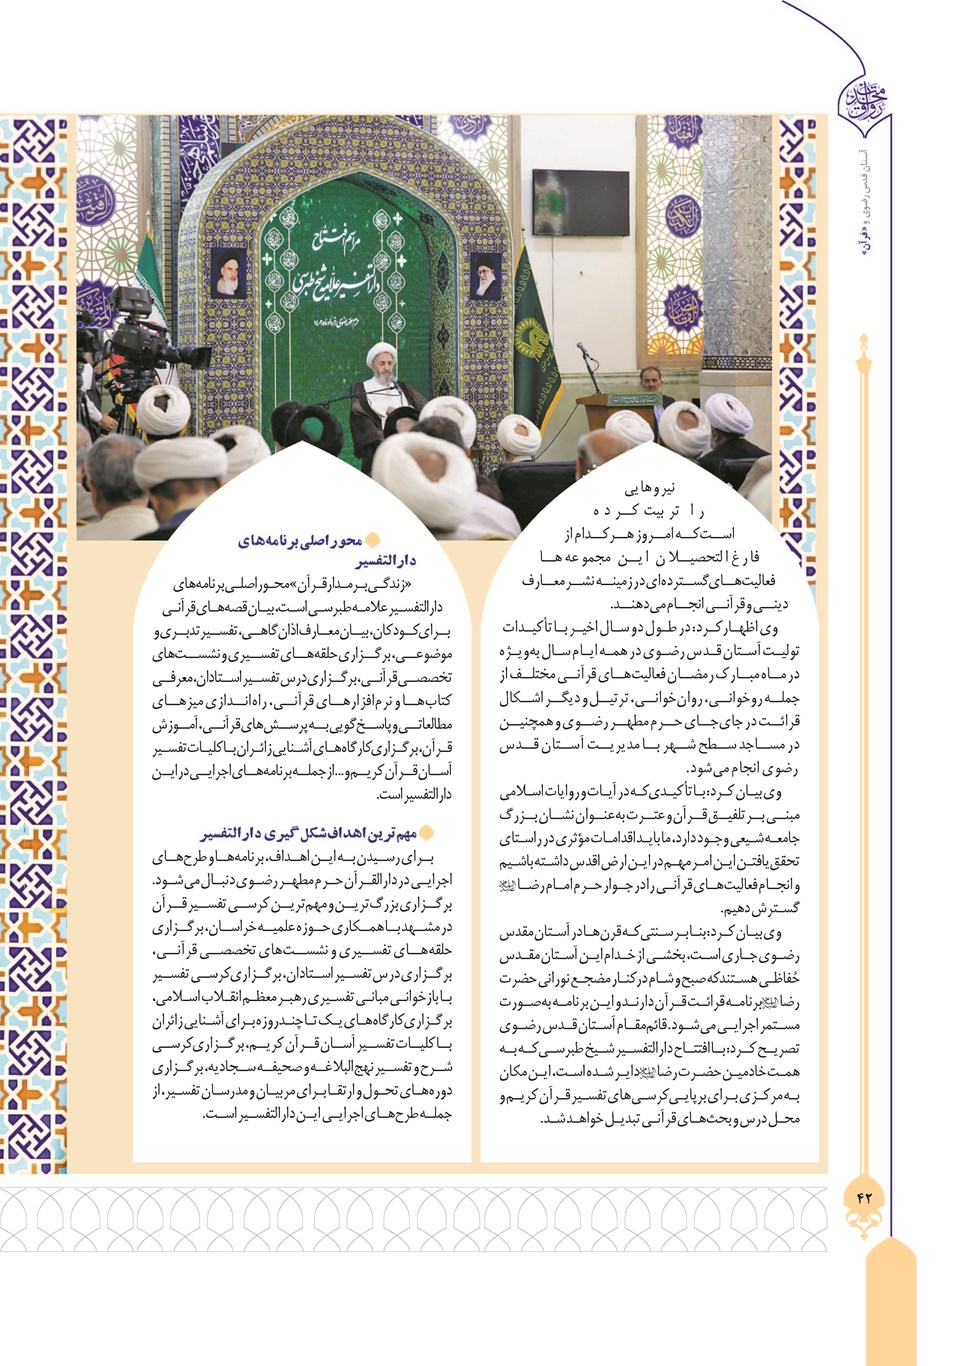 آستان قدس رضوی و «قرآن»
مراسم افتتاح
دارالتفسیر علامه شیخ طبرسی
نیروهایی
را تربیت کرده
است که امروز هر کدام از
فارغ‌التحصیلان این مجموعه‌ها
فعالیت‌های گسترده‌ای در زمینه نشر معارف
دینی و قرآنی انجام می‌دهند.
وی اظهار کرد: در طول دو سال اخیر با تأکیدات
تولیت آستان قدس رضوی در همه ایام سال به‌ویژه
در ماه مبارک رمضان فعالیت‌های قرآنی مختلف از
جمله روخوانی، روان‌خوانی، ترتیل و دیگر اشکال
قرائت در جای جای حرم مطهر رضوی و همچنین
در مساجد سطح شهر با مدیریت آستان قدس
رضوی انجام می‌شود.
وی بیان کرد: با تأکیدی که در آیات و روایات اسلامی
مبنی بر تلفیق قرآن و عترت به‌عنوان نشان بزرگ
جامعه شیعی وجود دارد، ما باید اقدامات مؤثری در راستای
تحقق یافتن این امر مهم در این ارض اقدس داشته باشیم
و انجام فعالیت‌های قرآنی را در جوار حرم امام رضا
گسترش دهیم.
وی بیان کرد: بنابر سنتی که قرن‌ها در آستان مقدس
رضوی جاری است، بخشی از خدام این آستان مقدس
حُفاظی هستند که صبح و شام در کنار مضجع نورانی حضرت
رضا برنامه قرائت قرآن دارند و این برنامه به‌صورت
مستمر اجرایی می‌شود. قائم‌مقام آستان قدس رضوی
تصریح کرد: با افتتاح دارالتفسیر شیخ طبرسی که به
همت خادمین حضرت رضا دایر شده است، این مکان
به مرکزی برای برپایی کرسی‌های تفسیر قرآن کریم و
محل درس و بحث‌های قرآنی تبدیل خواهد شد.
محور اصلی برنامه‌های
دارالتفسیر
«زندگی بر مدار قرآن» محور اصلی برنامه‌های
دارالتفسیر علامه طبرسی است، بیان قصه‌های قرآنی
برای کودکان، بیان معارف اذان گاهی، تفسیر تدبری و
موضوعی، برگزاری حلقه‌های تفسیری و نشست‌های
تخصصی قرآنی، برگزاری درس تفسیر استادان، معرفی
کتاب‌ها و نرم‌افزارهای قرآنی، راه‌اندازی میزهای
مطالعاتی و پاسخ‌گویی به پرسش‌های قرآنی، آموزش
قرآن، برگزاری کارگاه‌های آشنایی زائران با کلیات تفسیر
آسان قرآن کریم و... از جمله برنامه‌های اجرایی در این
دارالتفسیر است.
مهم‌ترین اهداف شکل گیری دارالتفسیر
برای رسیدن به این اهداف، برنامه‌ها و طرح‌های
اجرایی در دارالقرآن حرم مطهر رضوی دنبال می‌شود.
برگزاری بزرگ‌ترین و مهم‌ترین کرسی تفسیر قرآن
در مشهد با همکاری حوزه علمیه خراسان، برگزاری
حلقه‌های تفسیری و نشست‌های تخصصی قرآنی،
برگزاری درس تفسیر استادان، برگزاری کرسی تفسیر
با بازخوانی مبانی تفسیری رهبر معظم انقلاب اسلامی،
برگزاری کارگاه‌های یک تا چند روزه برای آشنایی زائران
با کلیات تفسیر آسان قرآن کریم، برگزاری کرسی
شرح و تفسیر نهج‌البلاغه و صحیفه سجادیه، برگزاری
دوره‌های تحول و ارتقا برای مربیان و مدرسان تفسیر، از
جمله طرح‌های اجرایی این دارالتفسیر است.
۴۲